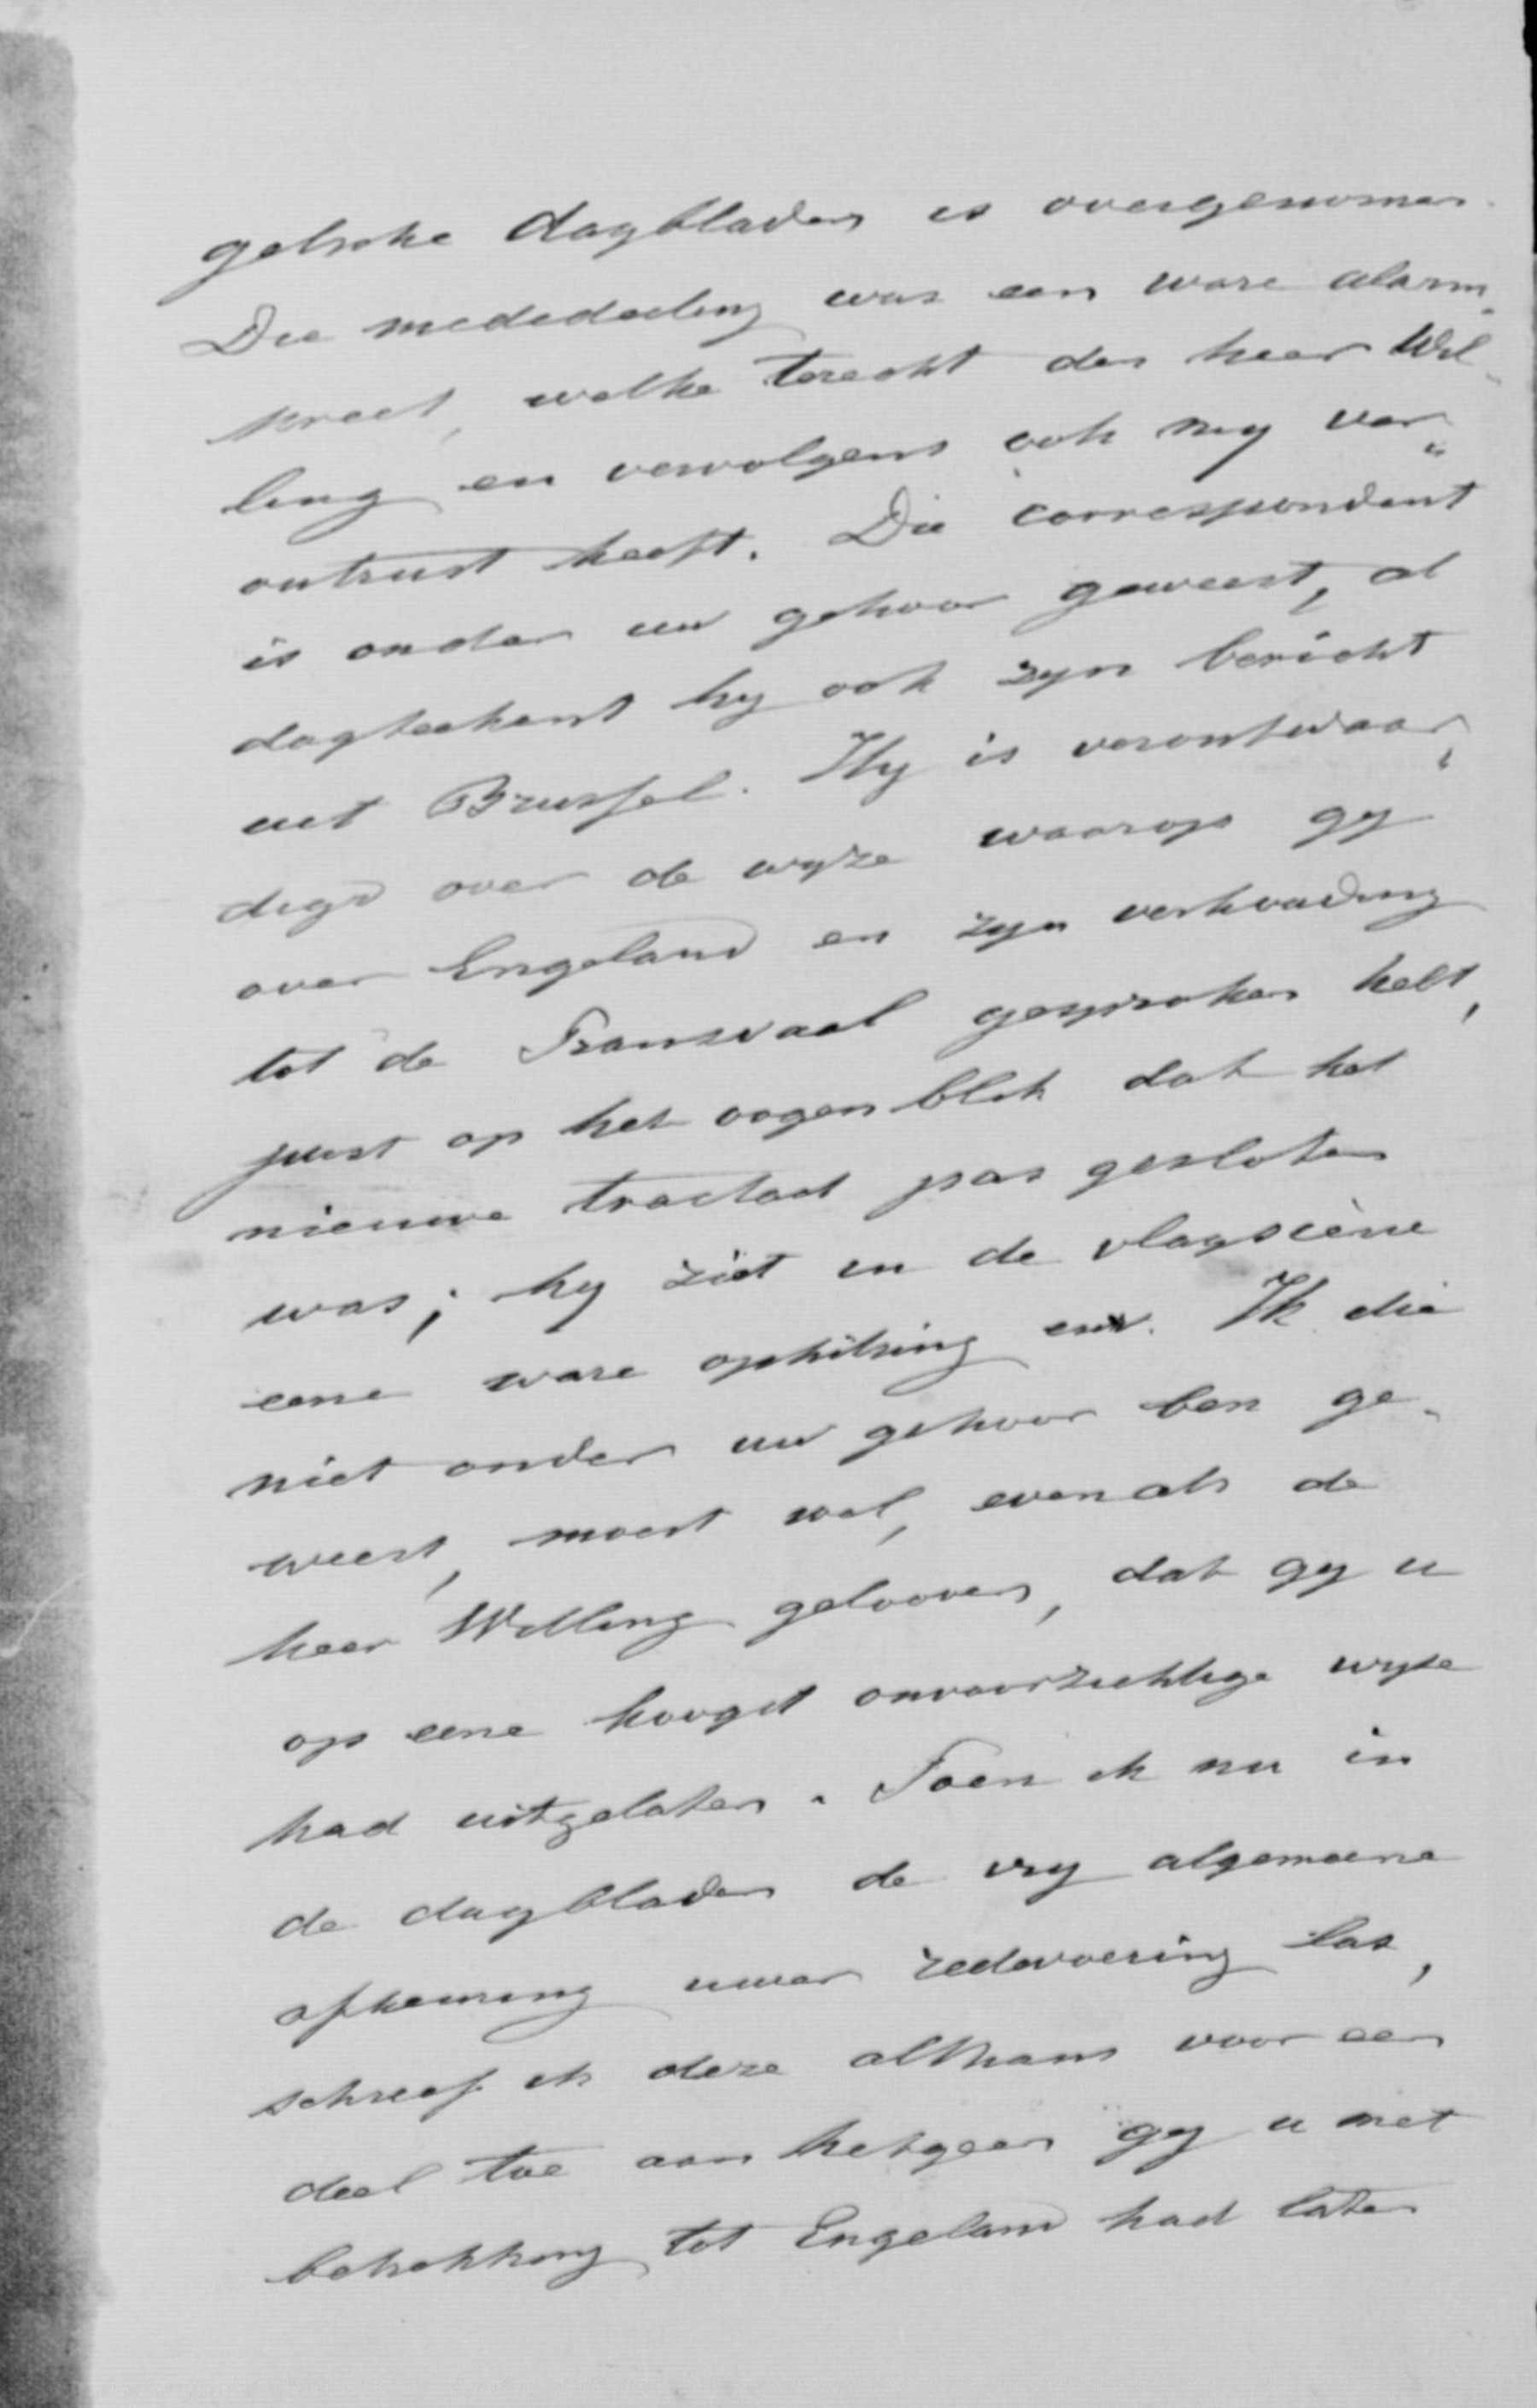 gelsche dagbladen is overgenomen.
Die mededeeling was een ware alarm-
kreet, welke terecht den heer Wil-
ling en vervolgens ook my ver-
ontrust heeft. Die correspondent
is onder uw gehoor geweest, al
dagteekent hy ook zyn bericht
uit Brussel. Hy is verontwaar-
digd over de wyze waarop gy
over Engeland en zyn verhouding
tot de Transvaal gesproken hebt,
juist op het oogenblik dat het
nieuwe tractaat pas gesloten
was; hy ziet in de vlagscène
eene ware ophitsing enz. Ik die
niet onder uw gehoor ben ge-
weest, moest wel, evenals de
heer Willing gelooven, dat gy u
op eene hoogst onvoorzichtige wyze
had uitgelaten. Toen ik nu in
de dagbladen de vry algemeene
afkeuring uwer redevoering las,
schreef ik deze althans voor een
deel toe aan hetgeen gy u met
betrekking tot Engeland had laten